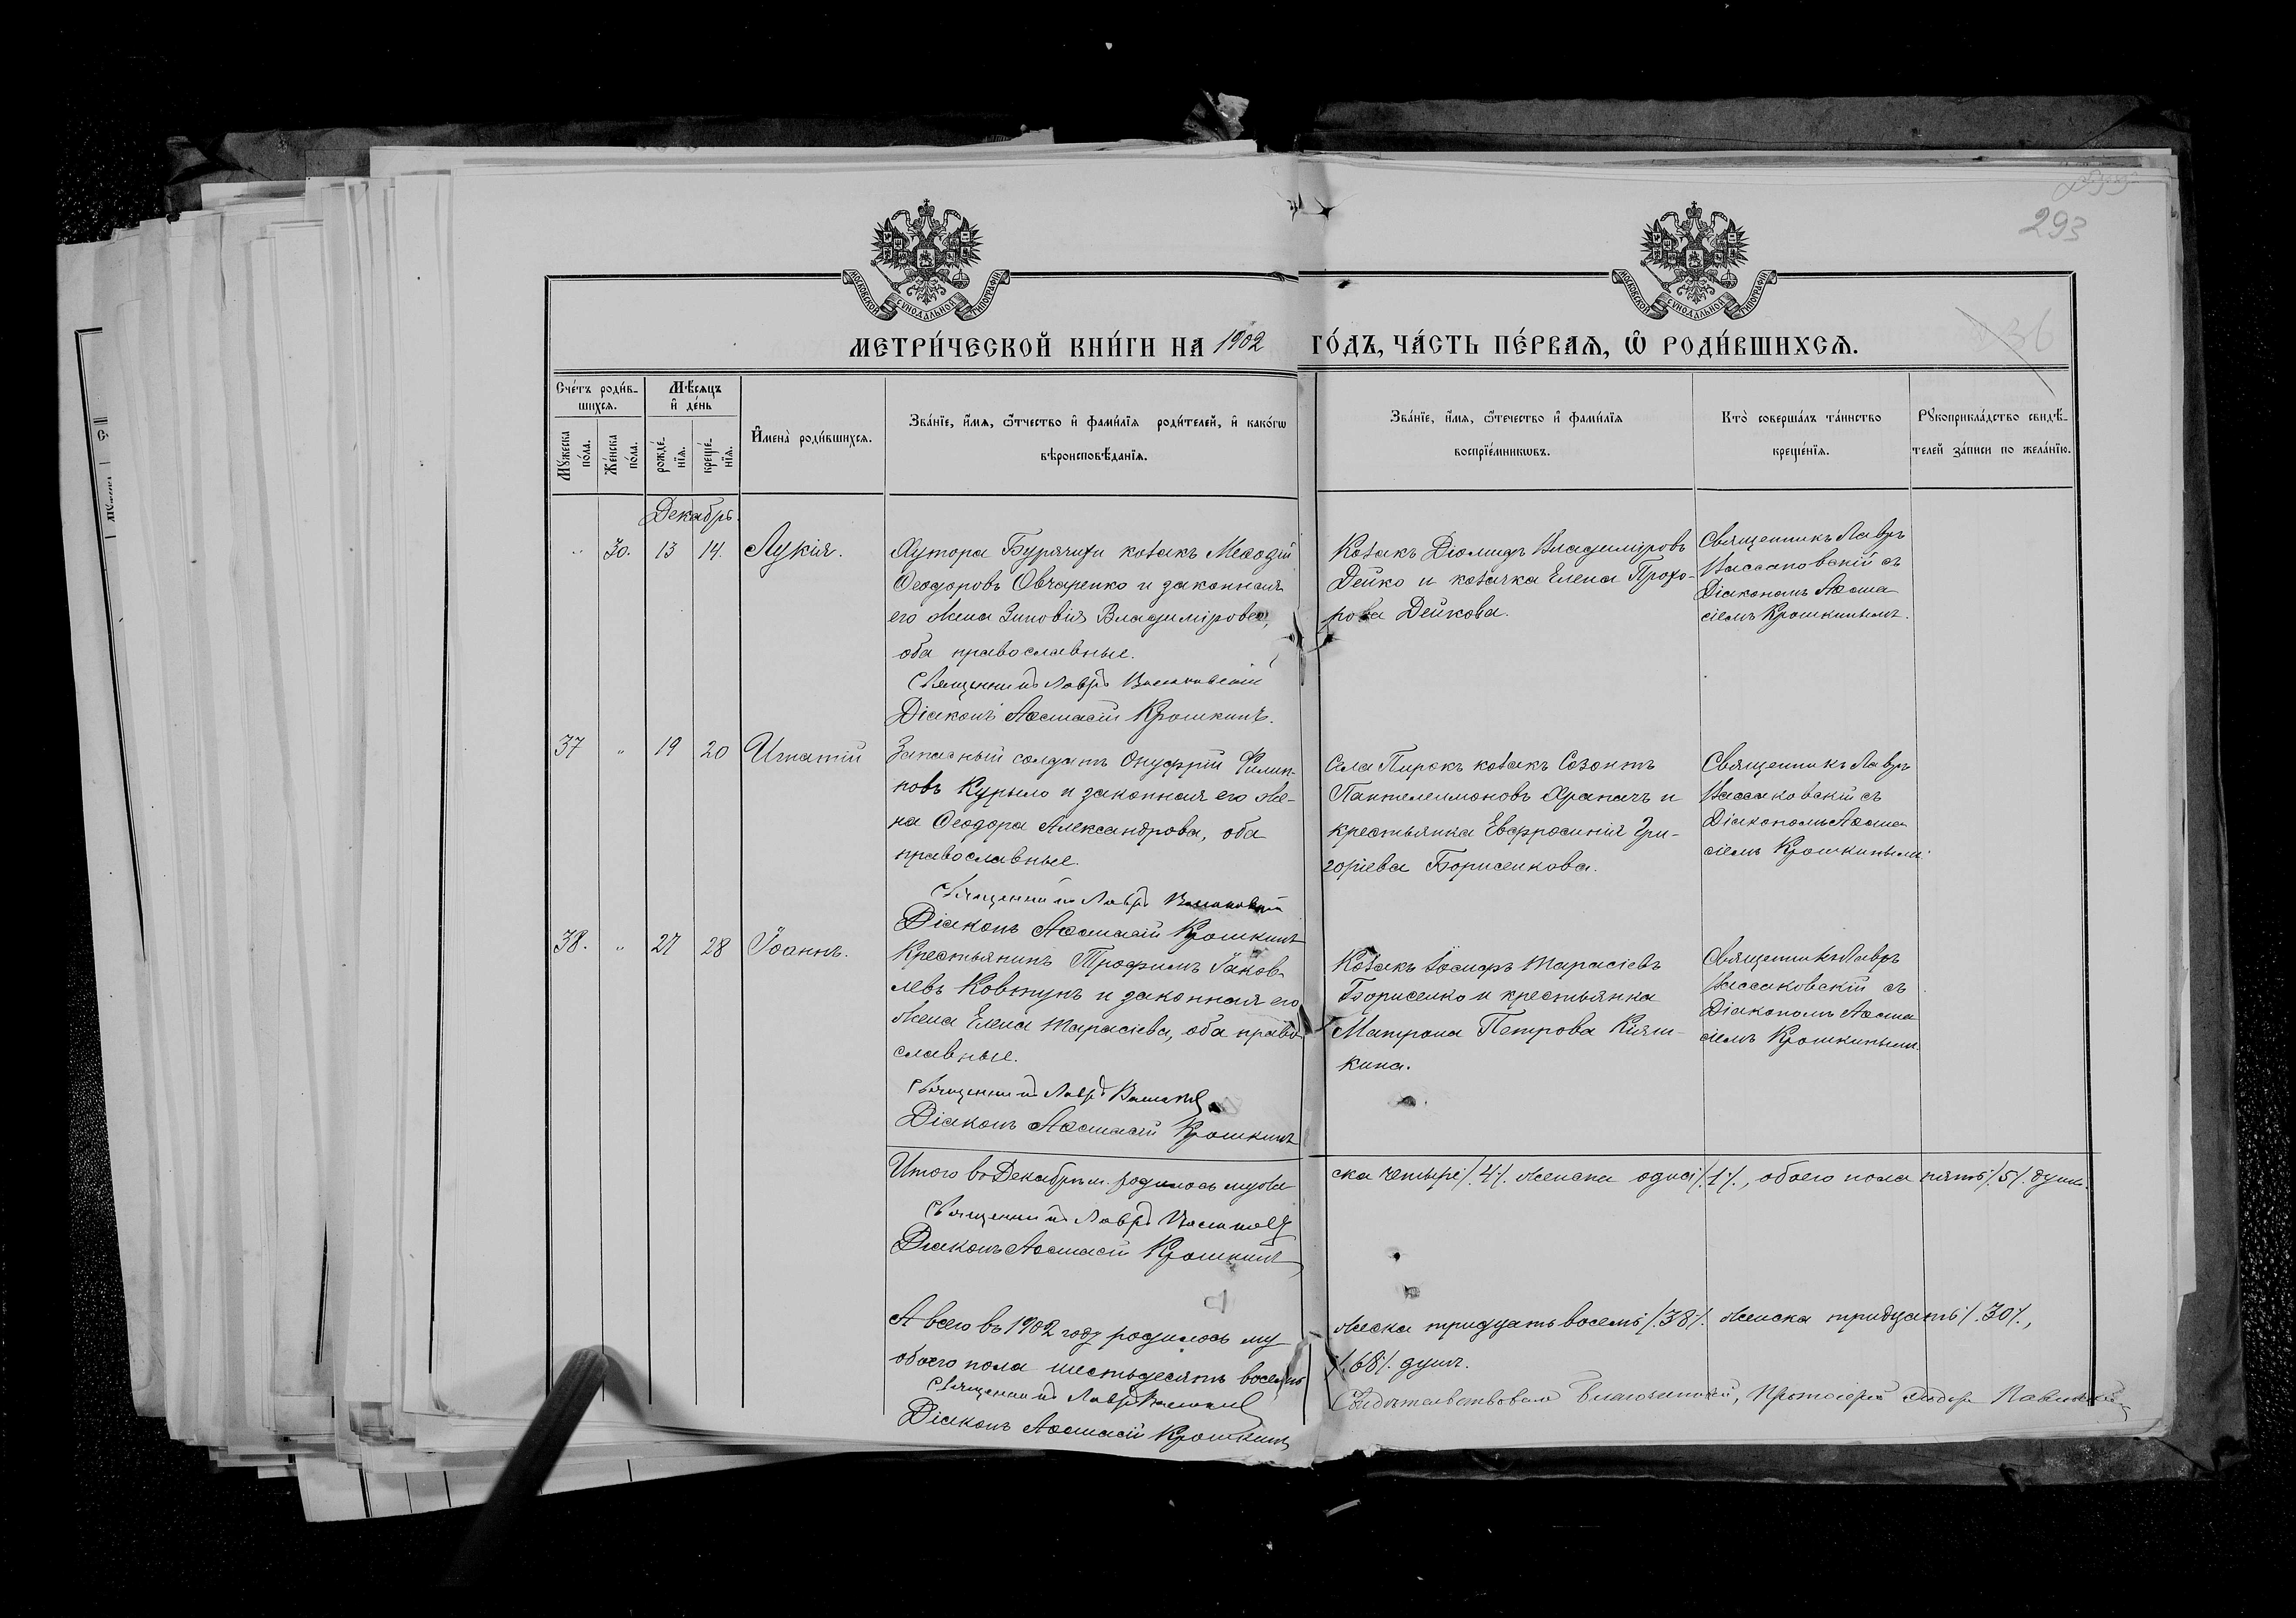 293
36
МОСКОВСКОЙ СѴНОДАЛЬНОЙ ТИПОГРАФІИ
МОСКОВСКОЙ СѴНОДАЛЬНОЙ ТИПОГРАФІИ
МЕТРИ́ЧЕСКОЙ КНИ́ГИ НА 1902 ГО́ДЪ, ЧА́СТЬ ПЕ́РВАѦ, Ѡ РОДИ́ВШИХСѦ.
Сче́тъ роди́в-
шихсѧ.
Мꙋ́жеска по́ла.
Же́нска по́ла.
Мѣ́сѧцъ
и҆ де́нь
рожде́-
нїѧ.
креще́-
нїѧ.
И҆мена̀ роди́вшихсѧ.
Зва́нїе, и҆́мѧ, ѻ҆́тчество и҆ фами́лїѧ роди́телей, и҆ како́гѡ
вѣроисповѣ́данїѧ.
Зва́нїе, и҆́мѧ, ѻ҆́течество и҆ фами́лїѧ
воспрїе́мникѡвъ.
Кто̀ соверша́лъ та́инство
креще́нїѧ.
Рꙋкоприкла́дство свидѣ́-
телей за́писи по жела́нїю.
Декабрь.
" 30. 13 14. Лукія.
Хутора Бурячихи козакъ Меѳодій
Ѳеодоровъ Овчаренко и законная
его жена Зиновія Владимірова,
оба православные.
Священникъ Лавръ
Діаконъ Аѳанасій Крошкинъ.
Козакъ Діомидъ Владиміровъ
Дейко и козачка Елена Прохо-
рова Дейкова.
Священникъ Лавръ
съ
Діакономъ Аѳана
сіемъ Крошкинымъ.
37 " 19 20 Игнатій
Запасный солдатъ Онуфрій Филип-
повъ Курыло и законная его же-
на Ѳеодора Александрова, оба
православные.
Священникъ Лавръ
Діаконъ Аѳанасій Крошкинъ
Села Пирокъ козакъ Созонтъ
Пантелеимоновъ Храпачъ и
крестьянка Евфросинія Гри-
горіева Борисенкова.
Священникъ Лавръ
съ
Діакономъ Аѳана
сіемъ Крошкинымъ.
38. " 27 28 Іоаннъ.
Крестьянинъ Трофимъ Іаков-
левъ Ковтунъ и законная его
жена Елена Тарасіева, оба право-
славные.
Священникъ Лавръ
Діаконъ Аѳанасій Крошкинъ
Козакъ Іосифъ Тарасіевъ
Борисенко и крестьянка
Матрона Петрова Кияш-
кина.
Священникъ Лавръ
съ
Діакономъ Аѳана
сіемъ Крошкинымъ.
Итого въ Декабрѣ м. родилось муже
ска четыре /.4/. женска одна /.1/., обоего пола пять /.5/. душъ.
Священникъ Лавръ
Діаконъ Аѳанасій Крошкинъ
А всего въ 1902 году родилось му
жеска тридцать восемь /.38/. женска тридцать /.30/.,
обоего пола шестьдесятъ восемь
/.68/. душъ.
Священникъ Лавръ
Діаконъ Аѳанасій Крошкинъ
Свидѣтельствовалъ Благочинный, Протоіерей